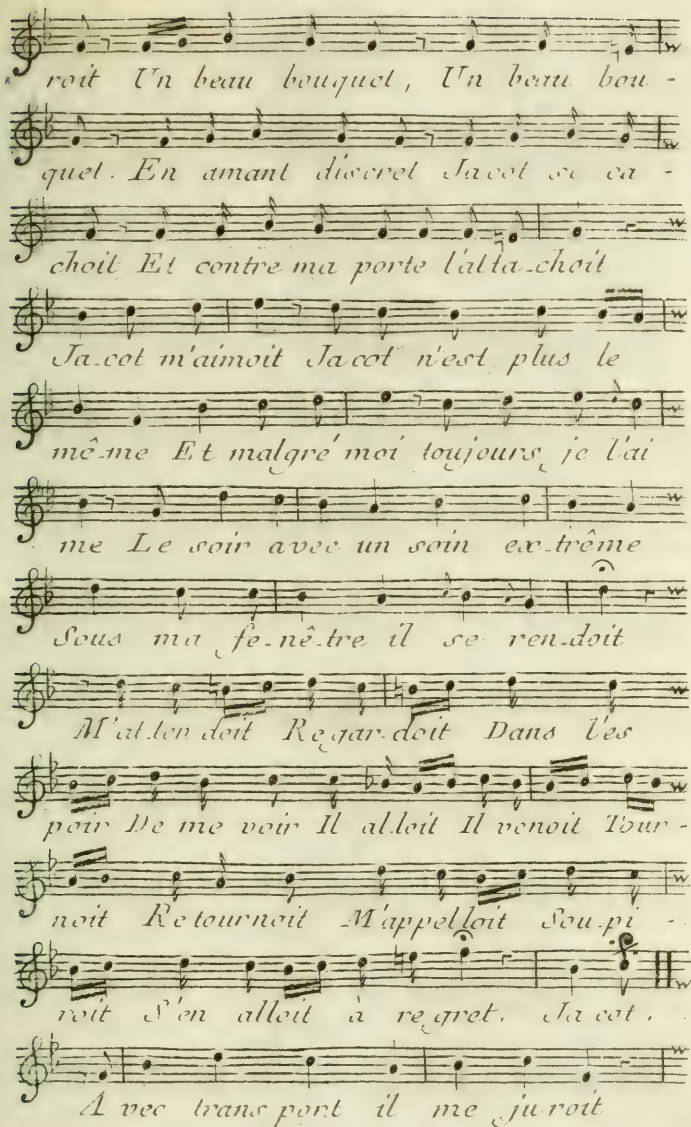 roit Un beau bouquet, Un beau bou-
quet. En amant discret Jacot se ca-
choit Et contre ma porte l'atta-choit
Ja-cot m'aimoit Jacot n'est plus le
mê-me Et malgré moi toujours je l'ai
me Le soir avec un soin ex-trême
Sous ma fe-nê-tre il se ren-doit
M'at-ten doit Re-gar-doit Dans l'es
poir De me voir Il al-loit Il venoit Tour-
noit Retournoit M'appelloit Sou-pi-
roit S'en alloit à regret. Ja cot.
A vec trans port il me ju roit